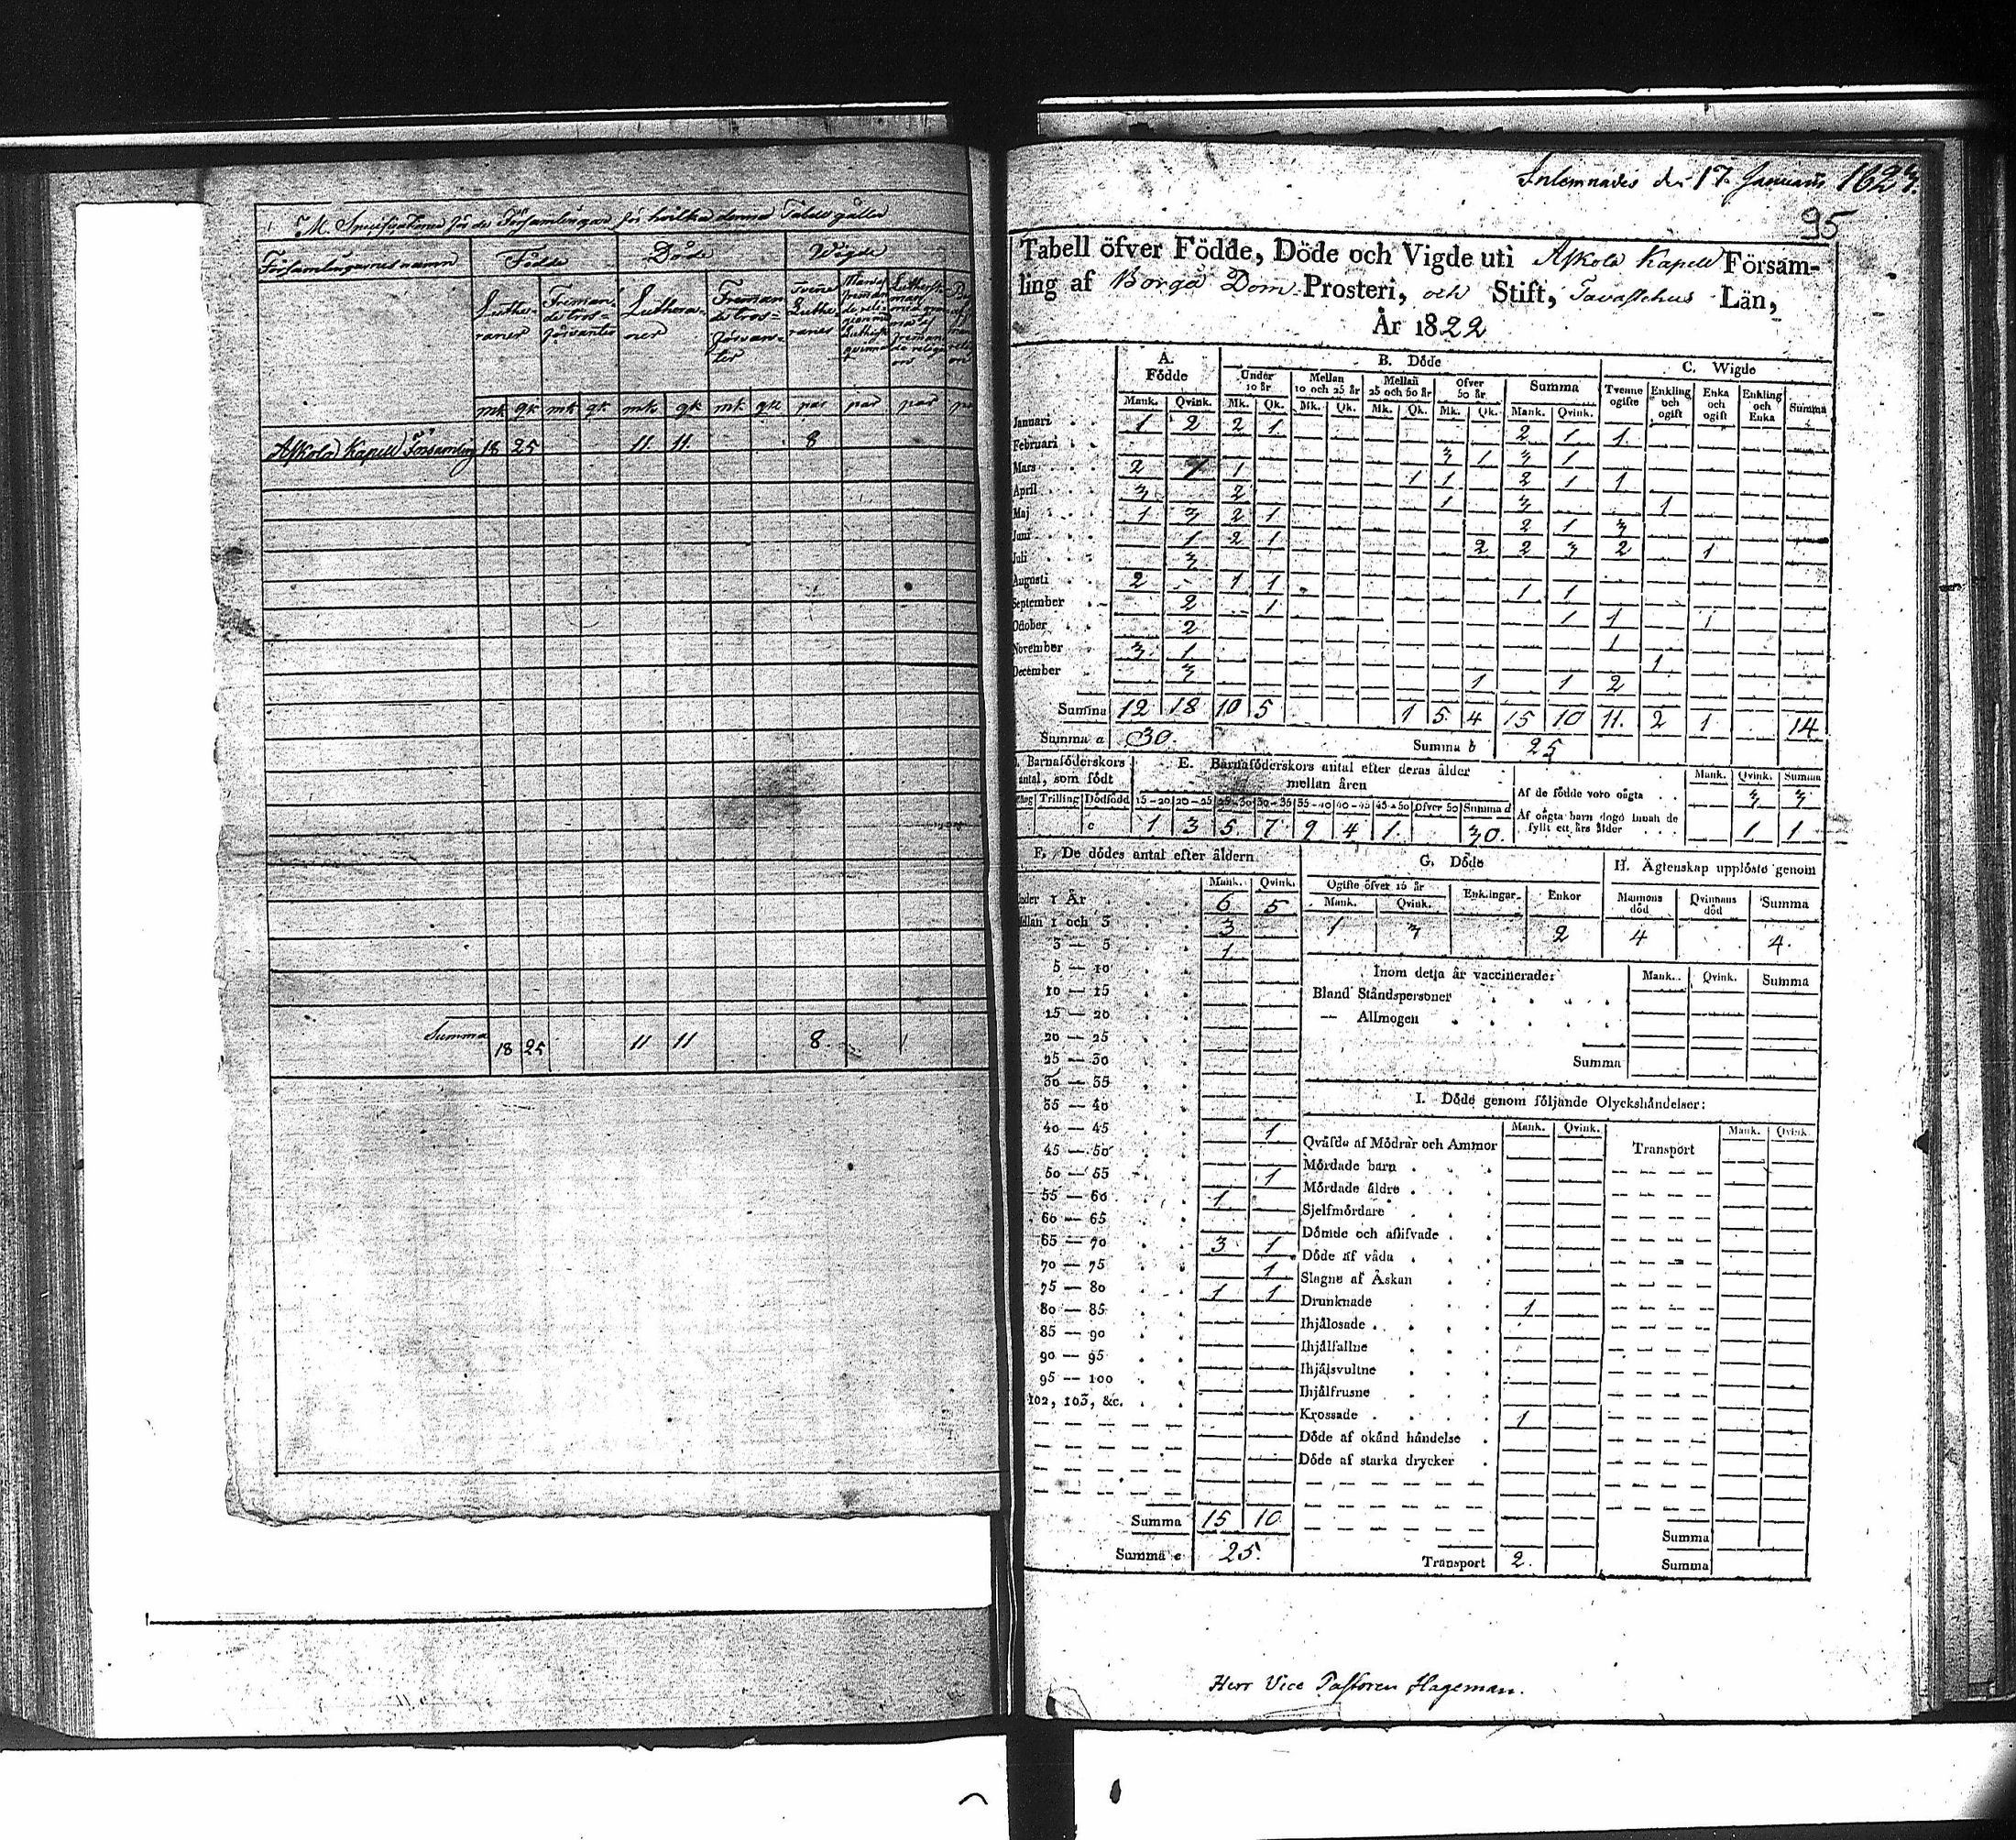 M. Specification för de Församlingar för hvilka denna Tabell gäller
Församlingarnes namn Födde Döde Wigde
Luthe- raner Fremman- de tros- förvanter Luthera- ner Fremman- de tros- förvan- ter Tvene Luthe- raner
mk qk mk qk mk qk mk qk par par par
Askola Kapell Församling 18 25 11. 11. 8
Summa 18 25 11 11 8.
Inlemnades den 17 Januarii 1823.
95
Tabell öfver Födde, Döde och Vigde uti Askola Kapell Försam-
ling af Borgå Dom-Prosteri, och Stift, Tavastehus Län,
År 1822
A. Födde B. Döde C. Wigde
Under 10 år Mellan 10 och 25 år Mellan 25 och 50 år Ofver 50 år Summa Tvenne ogifte Enkling och ogift Enka och ogift Enkling och Enka Summa
Mank. Qvink. Mk. Qk. Mk. Qk. Mk. Qk. Mk. Qk. Mank. Qvink.
Januari 1 2 2 1 2 1 1
Februari 3 1 3 1
Mars 2 1 1 1 1 2 1 1
April 3 2 1 3 1
Maj 1 3 2 1 2 1 3
Juni 1 2 1 2 2 3 2 1
Juli 3
Augusti 2 1 1 1 1
September 2 1 1 1
October 2 1
November 3 1 1
December 3 1 1 2
Summa 12 18 10 5 1 5 4 15 10 11. 2 1 14
Summa a 30. Summa b 25
D. Barnaföderskors antal, som födt E. Barnaföderskors antal efter deras ålder mellan åren Mank. Qvink. Summa
Trilling Dödfödd 15-20 20-25 25-30 30-35 35-40 40-45 45-50 Ofver 50 Summa d Af de födde voro oägta 3 3
c 1 3 5 7 9 4 1. 30. Af oägta barn dogo innan de fyllt ett års ålder 1 1
F. De dödes antal efter åldern. G. Döde H. Ägtenskap upplöste genom
Mank. Qvink. Ogifte öfver 15 år Mank. Qvink. Enklingar Enkor Mannens död Qvinnans död Summa
Under 1 År 6 5
Mellan 1 och 3 3 1 3 2 4 4.
3 — 5 1
5 — 10 Inom detta år vaccinerade: Mank. Qvink. Summa
10 — 15 Bland Ståndspersoner
15 — 20 — Allmogen
20 — 25
25 — 30 Summa
30 — 35
35 — 40 I. Döde genom följande Olyckshändelser:
40 — 45 1 Mank. Qvink. Mank. Qvink.
45 — 50 Qväfde af Mödrar och Ammor Transport
50 — 55 1 Mördade barn
55 — 60 1 Mördade äldre
60 — 65 Sjelfmördare
65 — 70 3 1 Dömde och aflifvade
70 — 75 1 Döde af våda
75 — 80 1 1 Slagne af Åskan
80 — 85 Drunknade 1
85 — 90 Ihjälosade
90 — 95 Ihjälfallne
95 — 100 Ihjälsvultne
102, 103, &c. Ihjälfrusne
Krossade 1
Döde af okänd händelse
Döde af starka drycker
Summa 15 10 Summa
Summa e 25. Transport 2. Summa
Herr Vice Pastoren Hageman.